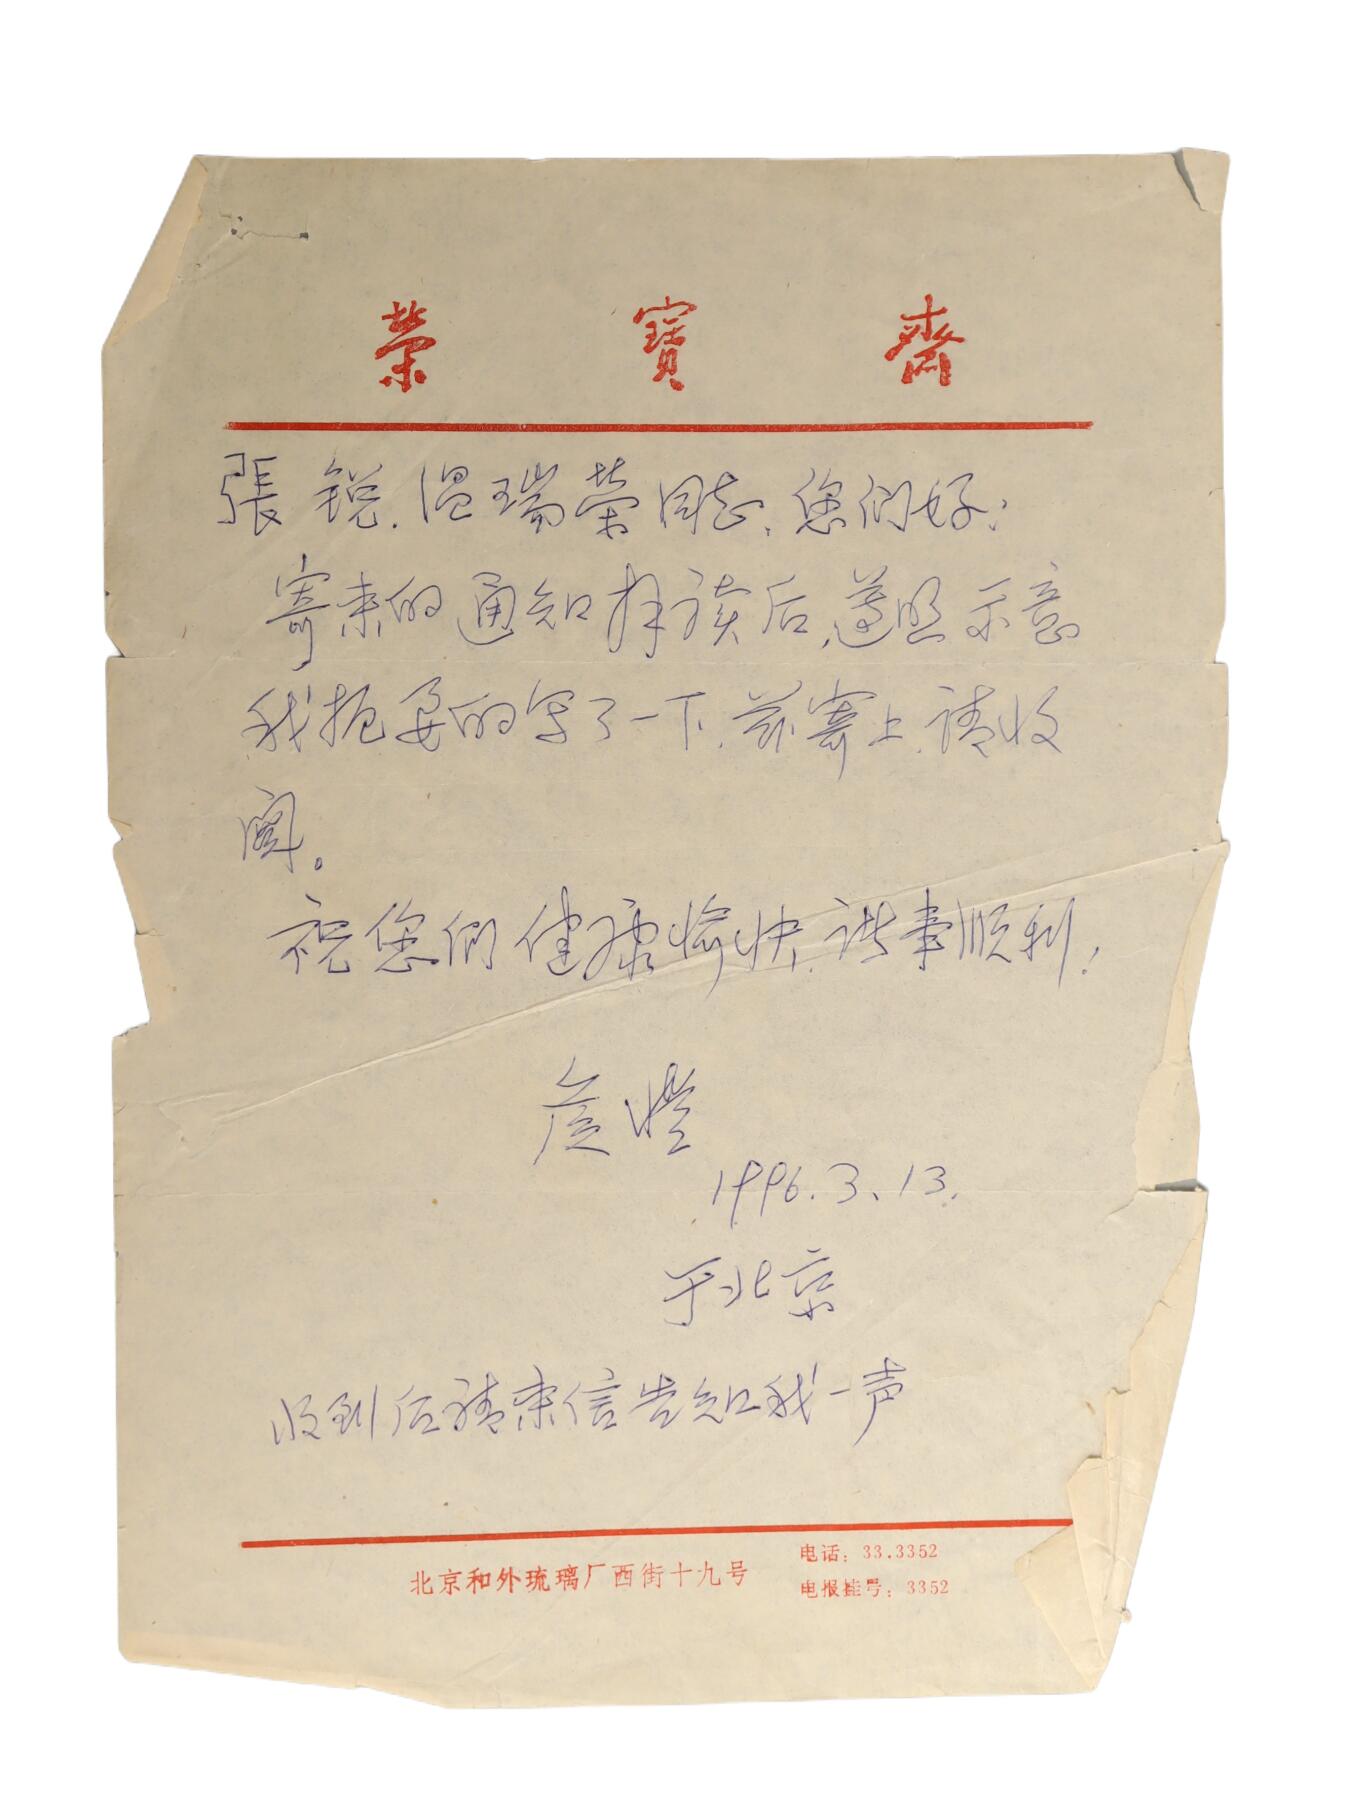 荣寶齋
張锐.温瑞荣同志.您们好:
寄来的通知拜读后,遵照示意
我扼要的写了一下.兹寄上.请收
阅。
祝您们健康愉快.诸事顺利!
1996.3.13.
于北京
收到后请来信告知我一声
北京和外琉璃厂西街十九号
电话:33.3352
电报挂号:3352